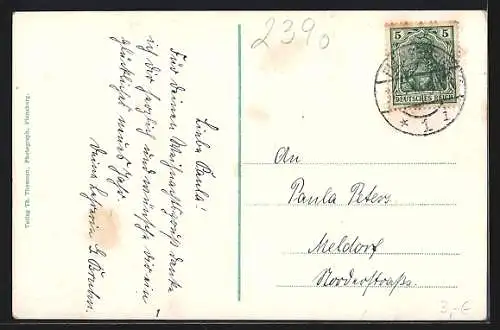 2390
5
DEUTSCHES REICH
* 1 i
Liebe Paula!
Für deinen Weihnachtsgruß danke
ich dir herzlich und wünsche dir ein
glückliches neues Jahr.
Deine Lehrerin G Bruhn.
An
Paula Peters
Meldorf
Norderstraße.
Verlag Th. Thomsen, Photograph, Flensburg.
3,-€